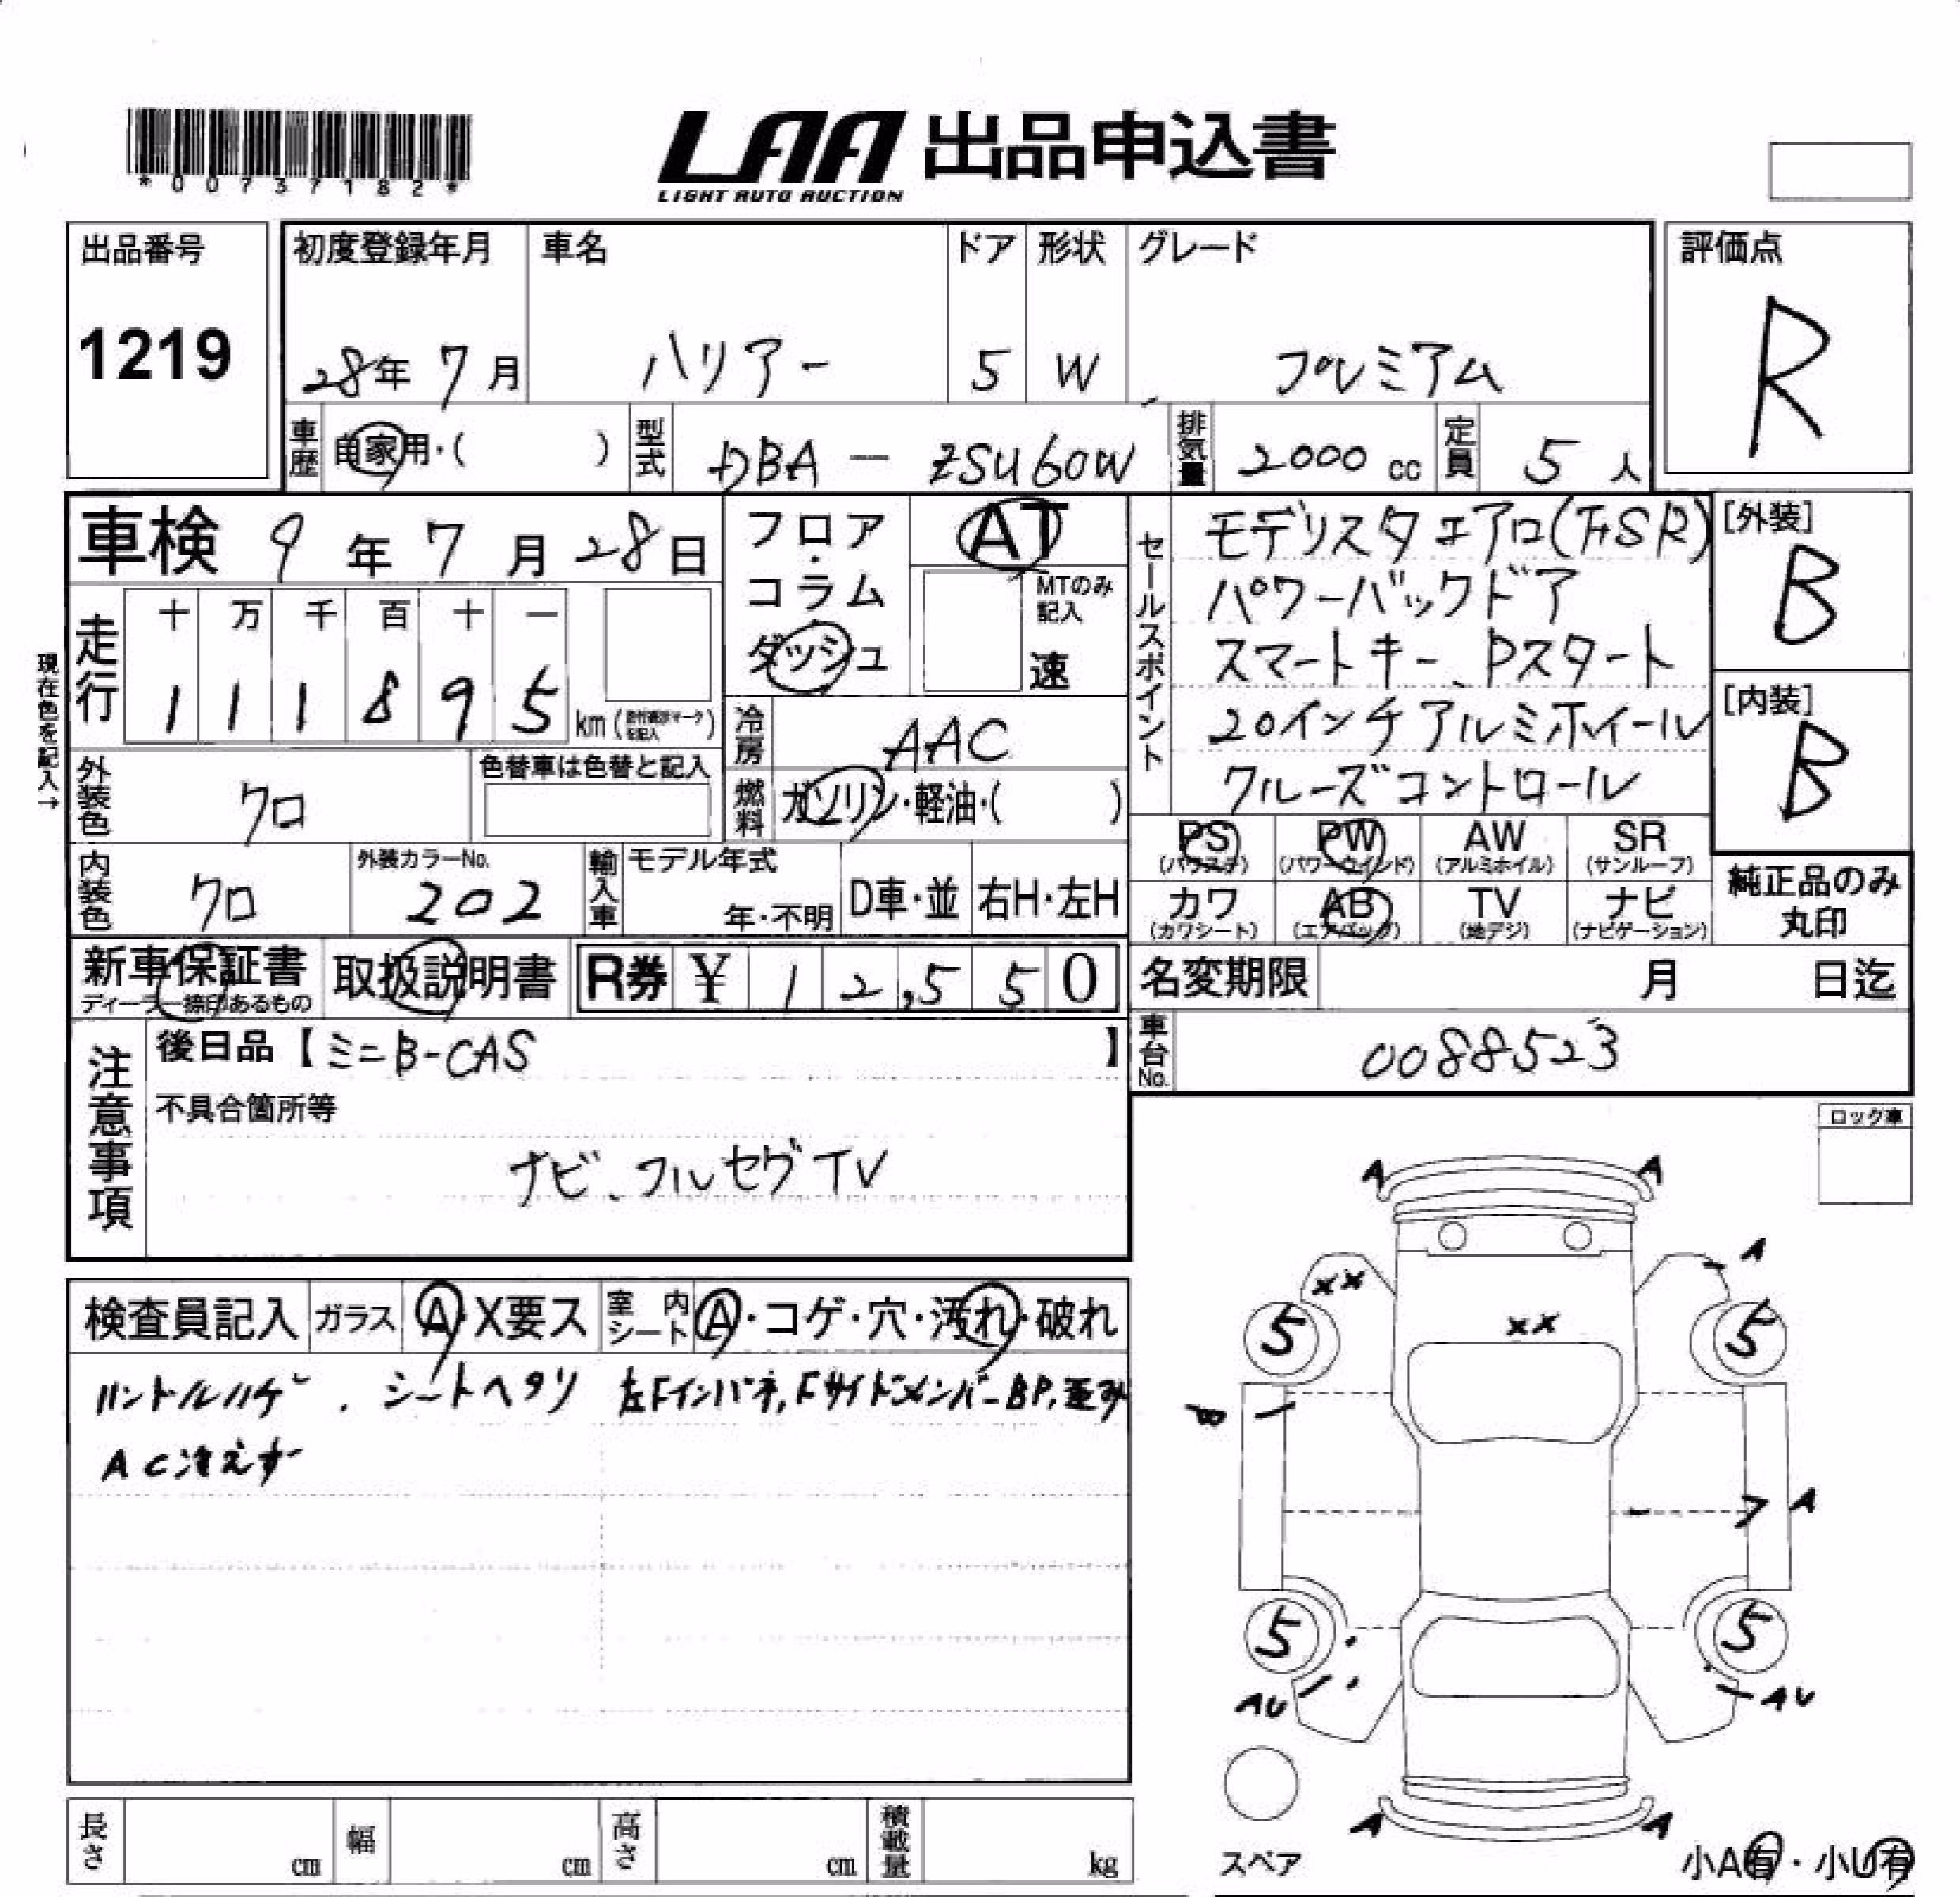 *0073718２*
LAA 出品申込書
LIGHT AUTO AUCTION
出品番号
1219
初度登録年月
28年 7月
車名
ハリアー
ドア
5
形状
W
グレード
プレミアム
評価点
R
車歴
自家用・( )
型式
DBA - ZSU60W
排気量
2000 cc
定員
5 人
車検 9年 7月 28日
フロア・コラム
ダッシュ
AT
MTのみ記入
速
セールスポイント
モデリスタエアロ(F.S.R)
パワーバックドア
スマートキー、Pスタート
20インチアルミホイール
クルーズコントロール
[外装]
B
[内装]
B
現在色を記入→
走行
十 万 千 百 十 一
1 1 1 8 9 5 km
を記入
冷房
AAC
燃料
ガソリン・軽油・( )
外装色
クロ
色替車は色替と記入
内装色
クロ
外装カラーNo.
202
輸入車
モデル年式
年・不明
D車・並
右H・左H
PS (パワステ)
PW (パワーウインド)
AW (アルミホイル)
SR (サンルーフ)
カワ (カワシート)
AB (エアバッグ)
TV (地デジ)
ナビ (ナビゲーション)
純正品のみ
丸印
新車保証書
ディーラー捺印あるもの
取扱説明書
R券 ¥ 12,550
名変期限 月 日迄
車台No.
0088523
注意事項
後日品【ミニB-CAS】
不具合箇所等
ナビ、フルセグTV
ロック車
検査員記入
ガラス A・X要ス
室内シート A・コゲ・穴・汚れ・破れ
ハンドルハゲ、シートヘタリ 左Fインパネ,FサイドメンバーBP,歪み
AC冷えず
A A
A
XX
XX
5 5
B
A
5 5
AU AU
A A
スペア
小A有・小U有
長さ cm
幅 cm
高さ cm
積載量 kg